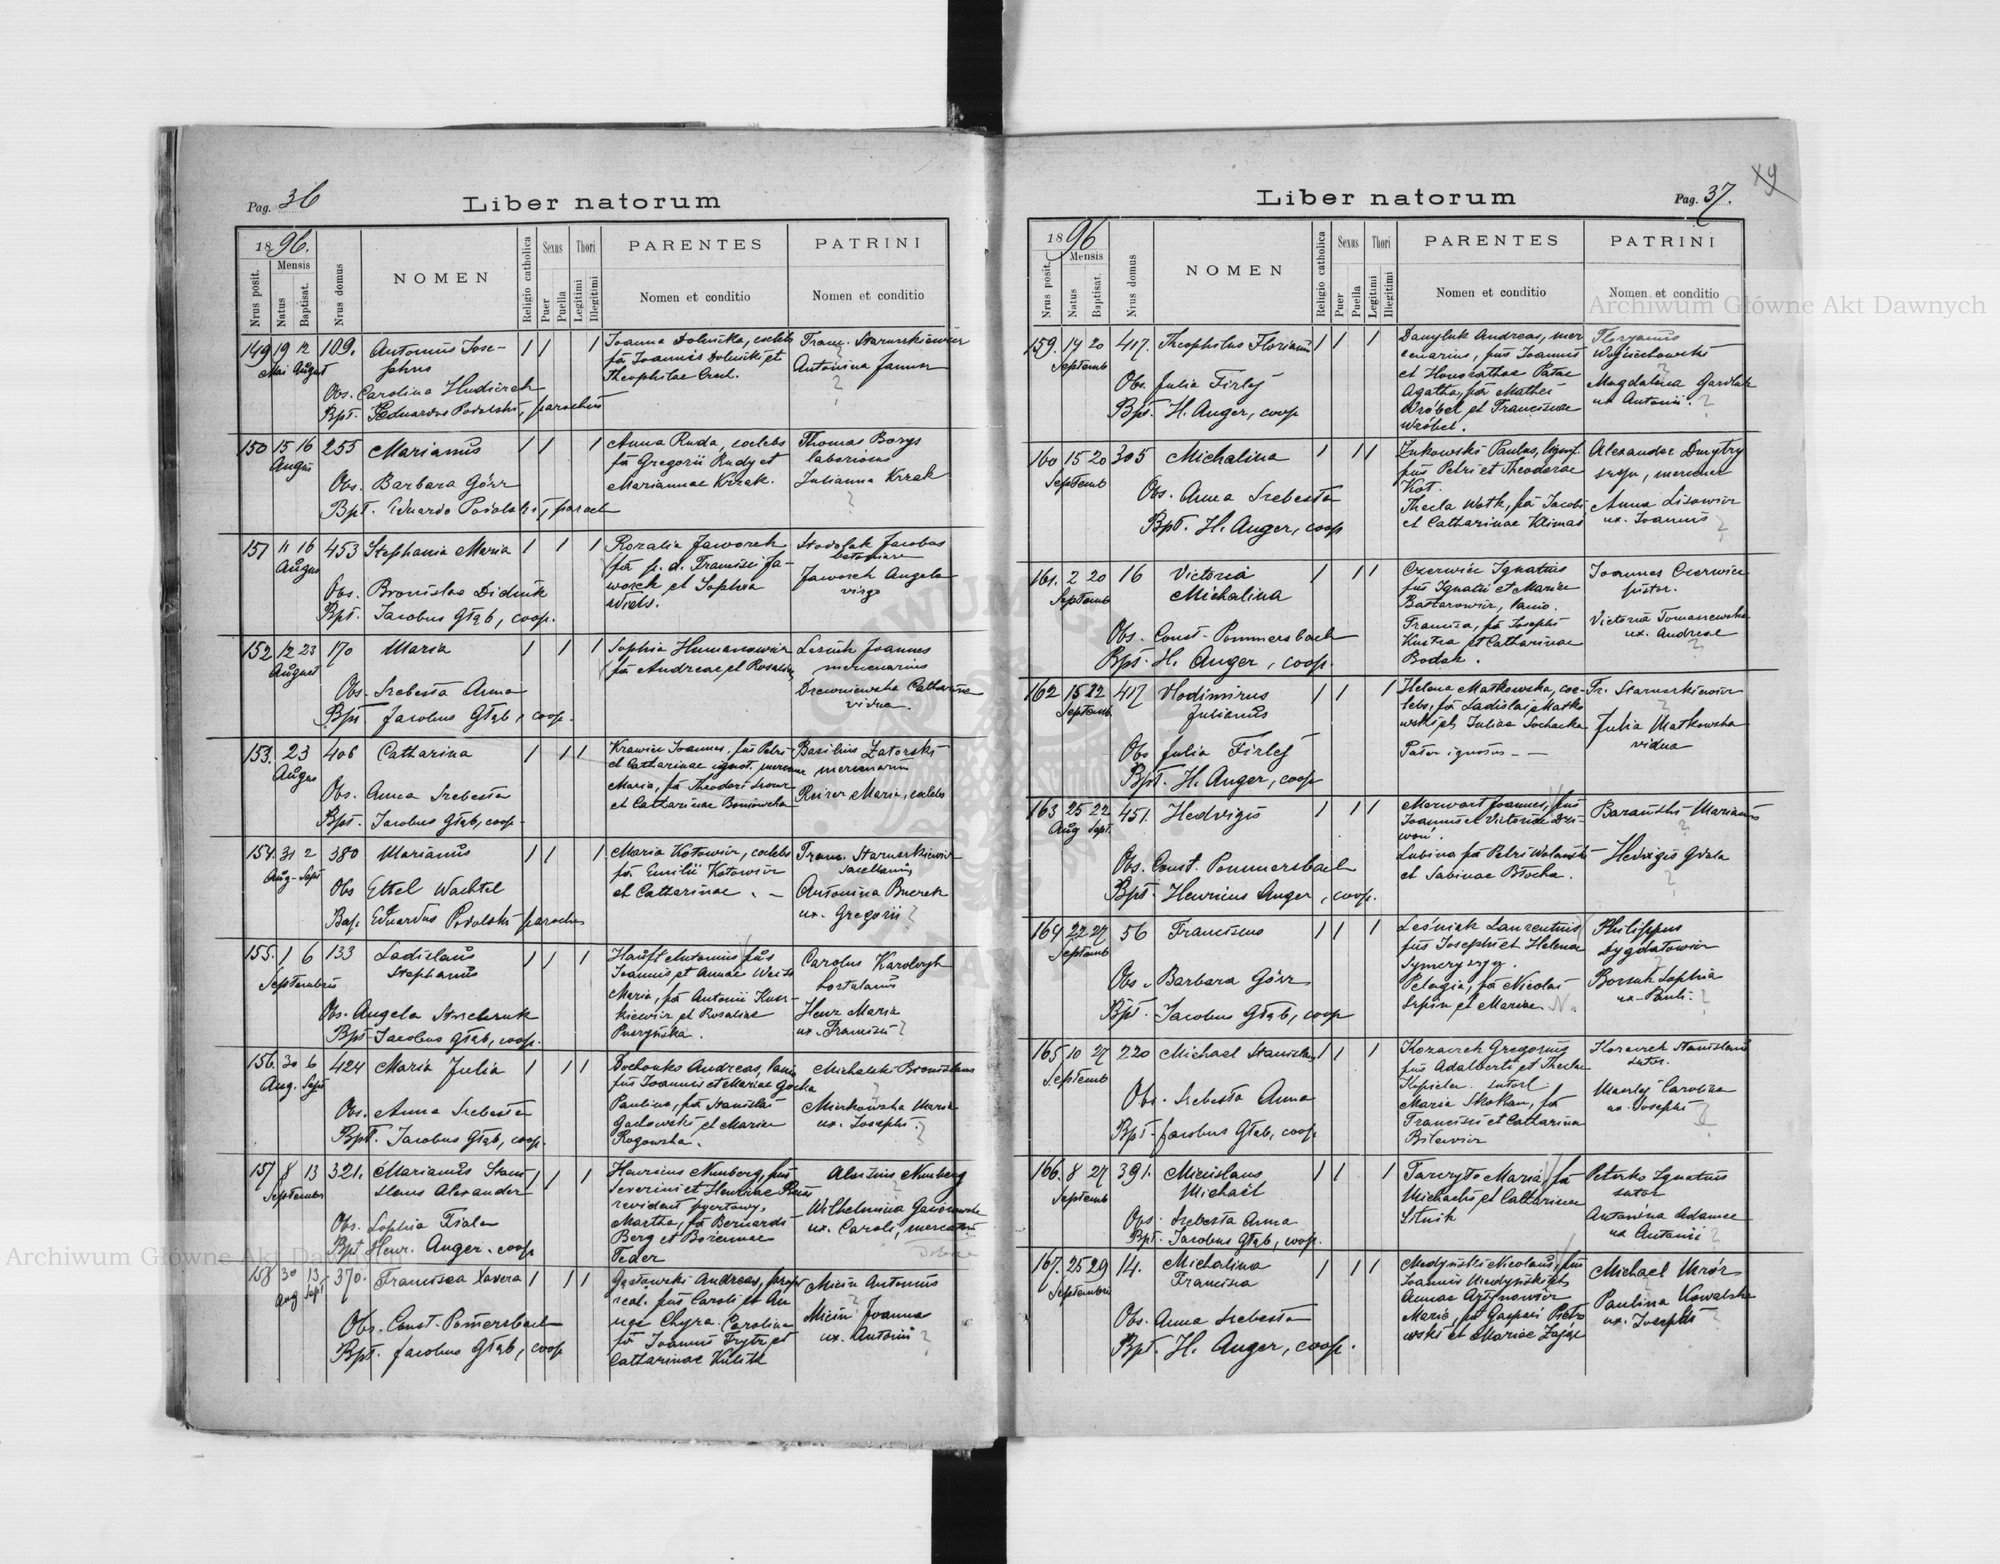 Pag. 36
Liber natorum
1896.
Nrus posit.
Mensis
Natus
Baptisat.
Nrus domus
NOMEN
Religio catholica
Sexus
Puer
Puella
Thori
Legitimi
Illegitimi
PARENTES
Nomen et conditio
PATRINI
Nomen et conditio
149 19 12 109. Antonius Jose-
Mai August phus
Obs. Carolina Hudicrek
Bpt. Eduardus Podolski, parochus
Joanna Dolnicka, caelebs
fa Joannis Dolnicki et
Theophilae
Franc. Starurkiewicz
Antonina Janusz
?
150 15 16 255 Marianus
August
Obs. Barbara Görz
Bpt. Eduardo Podolski, paroch
Anna Ruda, caelebs
fa Gregorii Rudy et
Mariannae Krzak.
Thomas Borys
laboriosus
Julianna Krzak
?
151 11 16 453 Stephania Maria
August
Obs. Bronislae Diduuk
Bpt. Jacobus Głąb, coop.
Rozalia Jaworek
fa p. d. Francisci Ja-
worek et Sophia
Stodolak Jacobus
Jaworek Angela
virgo
152 12 23 170 Maria
August
Obs. Srebesta Anna
Bpt. Jacobus Głąb, coop.
Sophia Humanowicz
fa Andreae et Rosaliae
Lesiuk Joannes
mercenarius
Drewniewska Catharina
vidua.
153. 23 406 Catharina
August
Obs. Anna Srebesta
Bpt. Jacobus Głąb, coop.
Krawiec Joannes, fus Petri
et Catharinae ignot. mercenar
Maria, fa Theodori
et Catharinae
Basilius Zatorski
mercenarius
Reizer Maria, caelebs
154. 31 2 380 Marianus
Aug. Sept
Obs Ettel Wachtel
Bap. Eduardus Podolski parochus
Maria Kotowicz, caelebs
fa Emilii Kotowicz
et Catharinae. –
Franc. Starurkiewicz
Antonina Bucrek
ux. Gregorii ?
155. 1 6 133 Ladislaus
Septembris Stephanus
Obs. Angela
Bpt. Jacobus Głąb, coop.
Hauft Antonius fus
Joannis et Annae Weiss
Maria, fa Antonii Kusz-
kiewicz et Rosaliae
Puszyńska.
Carolus Karolczyk
hortulanus
Henz Maria
ux. Francisci ?
156. 30 6 424 Maria Julia
Aug. Sept
Obs. Anna Srebesta
Bpt. Jacobus Głąb, coop.
Andreas,
fus Joannis et Mariae Gocka
Paulina, fa Stanislai
Gadowski et Mariae
Rogowska.
Michalski Bronislaus
?
Mierkowska Maria
ux. Josephi. ?
157 8 13 321. Marianus Stani
Septembr slaus Alexander
Obs. Sophia Fiala
Bpt Henr. Anger. coop
Henricus Nemberg, fus
Severini et Henricae
revident
Martha, fa Bernardi
Berg et
Feder
Aloisius Nemberg
Wilhelmina
ux. Caroli,
158 30 13 370. Francisca Xavera
Aug Sept
Obs. Const. Pomersbach
Bpt. Jacobus Głąb, coop
Gąstowski Andreas,
real. fus Caroli et An
nae Chyra. Carolina
fa Joannis Frytz et
Catharinae Kulik
Micin Antonius
?
Micin Joanna
ux. Antonii ?
Liber natorum
Pag. 37.
1896
Nrus posit.
Mensis
Natus
Baptisat.
Nrus domus
NOMEN
Religio catholica
Sexus
Puer
Puella
Thori
Legitimi
Illegitimi
PARENTES
Nomen et conditio
PATRINI
Nomen et conditio
159. 14 20 417. Theophilus Florianus
Septemb
Obs. Julia Firlej
Bpt. H. Anger, coop
Danyluk Andreas, mer
cenarius, fus Joannis
et Honorathae
Agatha, fa Mathei
Wróbel et Franciscae
Wróbel.
Floryanus
Wojciechowski
?
Magdalena Gardlak
ux Antonii. ?
160 15 20 305 Michalina
Septemb
Obs. Anna Srebesta
Bpt. H. Anger, coop
Żukowski Paulus,
fus Petri et Theodorae
Kot.
Thecla Watk, fa Jacobi
et Catharinae Klimas
Alexander Dmytry
szyn, mercenar
Anna Lisowicz
ux. Joannis ?
161. 2 20 16 Victoria
Septemb Michalina
Obs. Const. Pommersbach
Bpt. H. Anger, coop.
Czerwiec Ignatius
fus Ignatii et Mariae
Francisca, fa Josephi
Kustra et Catharinae
Bodak.
Joannes Czerwiec
pistor.
Victoria Tomaszewska
ux. Andreae
?
162 15 22 417 Vlodimirus
Septemb. Julianus
Obs Julia Firlej
Bpt. H. Anger, coop
Helena Matkowska, cae-
lebs, fa Ladislai Matko
wski et Juliae Sochacka
Pater ignotus – –
Fr. Starurkiewicz
?
Julia Matkowska
vidua
163 25 22 451. Hedvigis
Aug Sept.
Obs. Const. Pommersbach
Bpt. Henricus Anger, coop.
Merwart Joannes, fus
Joannis et Victoriae Dzi-
woń.
Lubina fa Petri Wolański
et Sabinae Błocka.
Barański Marianus
?
Hedvigis Grala
?
164 22 27 56 Franciscus
Septemb
Obs. Barbara Görz
Bpt. Jacobus Głąb, coop
Leśniak Laurentius
fus Josephi et Helenae
Symeryszyn.
Pelagia, fa Nicolai
et Mariae
Philippus
Dygdatowicz
?
Borsuk Sophia
ux. Pauli. ?
165 10 27 220 Michael Stanislaus
Septemb
Obs. Srebesta Anna
Bpt. Jacobus Głąb, coop.
Kozaczek Gregorius
fus Adalberti et Theclae
Kopiela. sutor
Maria Skokan, fa
Francisci et Catharina
Bilewicz
Kozaczek Stanislaus
sutor.
Carolina
ux. Josephi ?
166. 8 27 391. Micislaus
Septemb Michael
Obs. Srebesta Anna
Bpt. Jacobus Głąb, coop.
Maria, fa
Michaelis et Catharinae
Sitnik
Peterko Ignatius
sutor
Antonina Adamce
ux Antonii ?
167. 25 29 14. Michalina
Septembris Francisca
Obs. Anna Srebesta
Bpt. H. Anger, coop.
Medyński Nicolaus, fus
Joannis Medyński et
Annae Artynowicz
Maria, fa Gaspari Piotro
wski et Mariae Zając
Michael Mróz
Paulina Kowalska
ux. Josephi ?
Archiwum Główne Akt Dawnych
Archiwum Główne Akt Dawnych